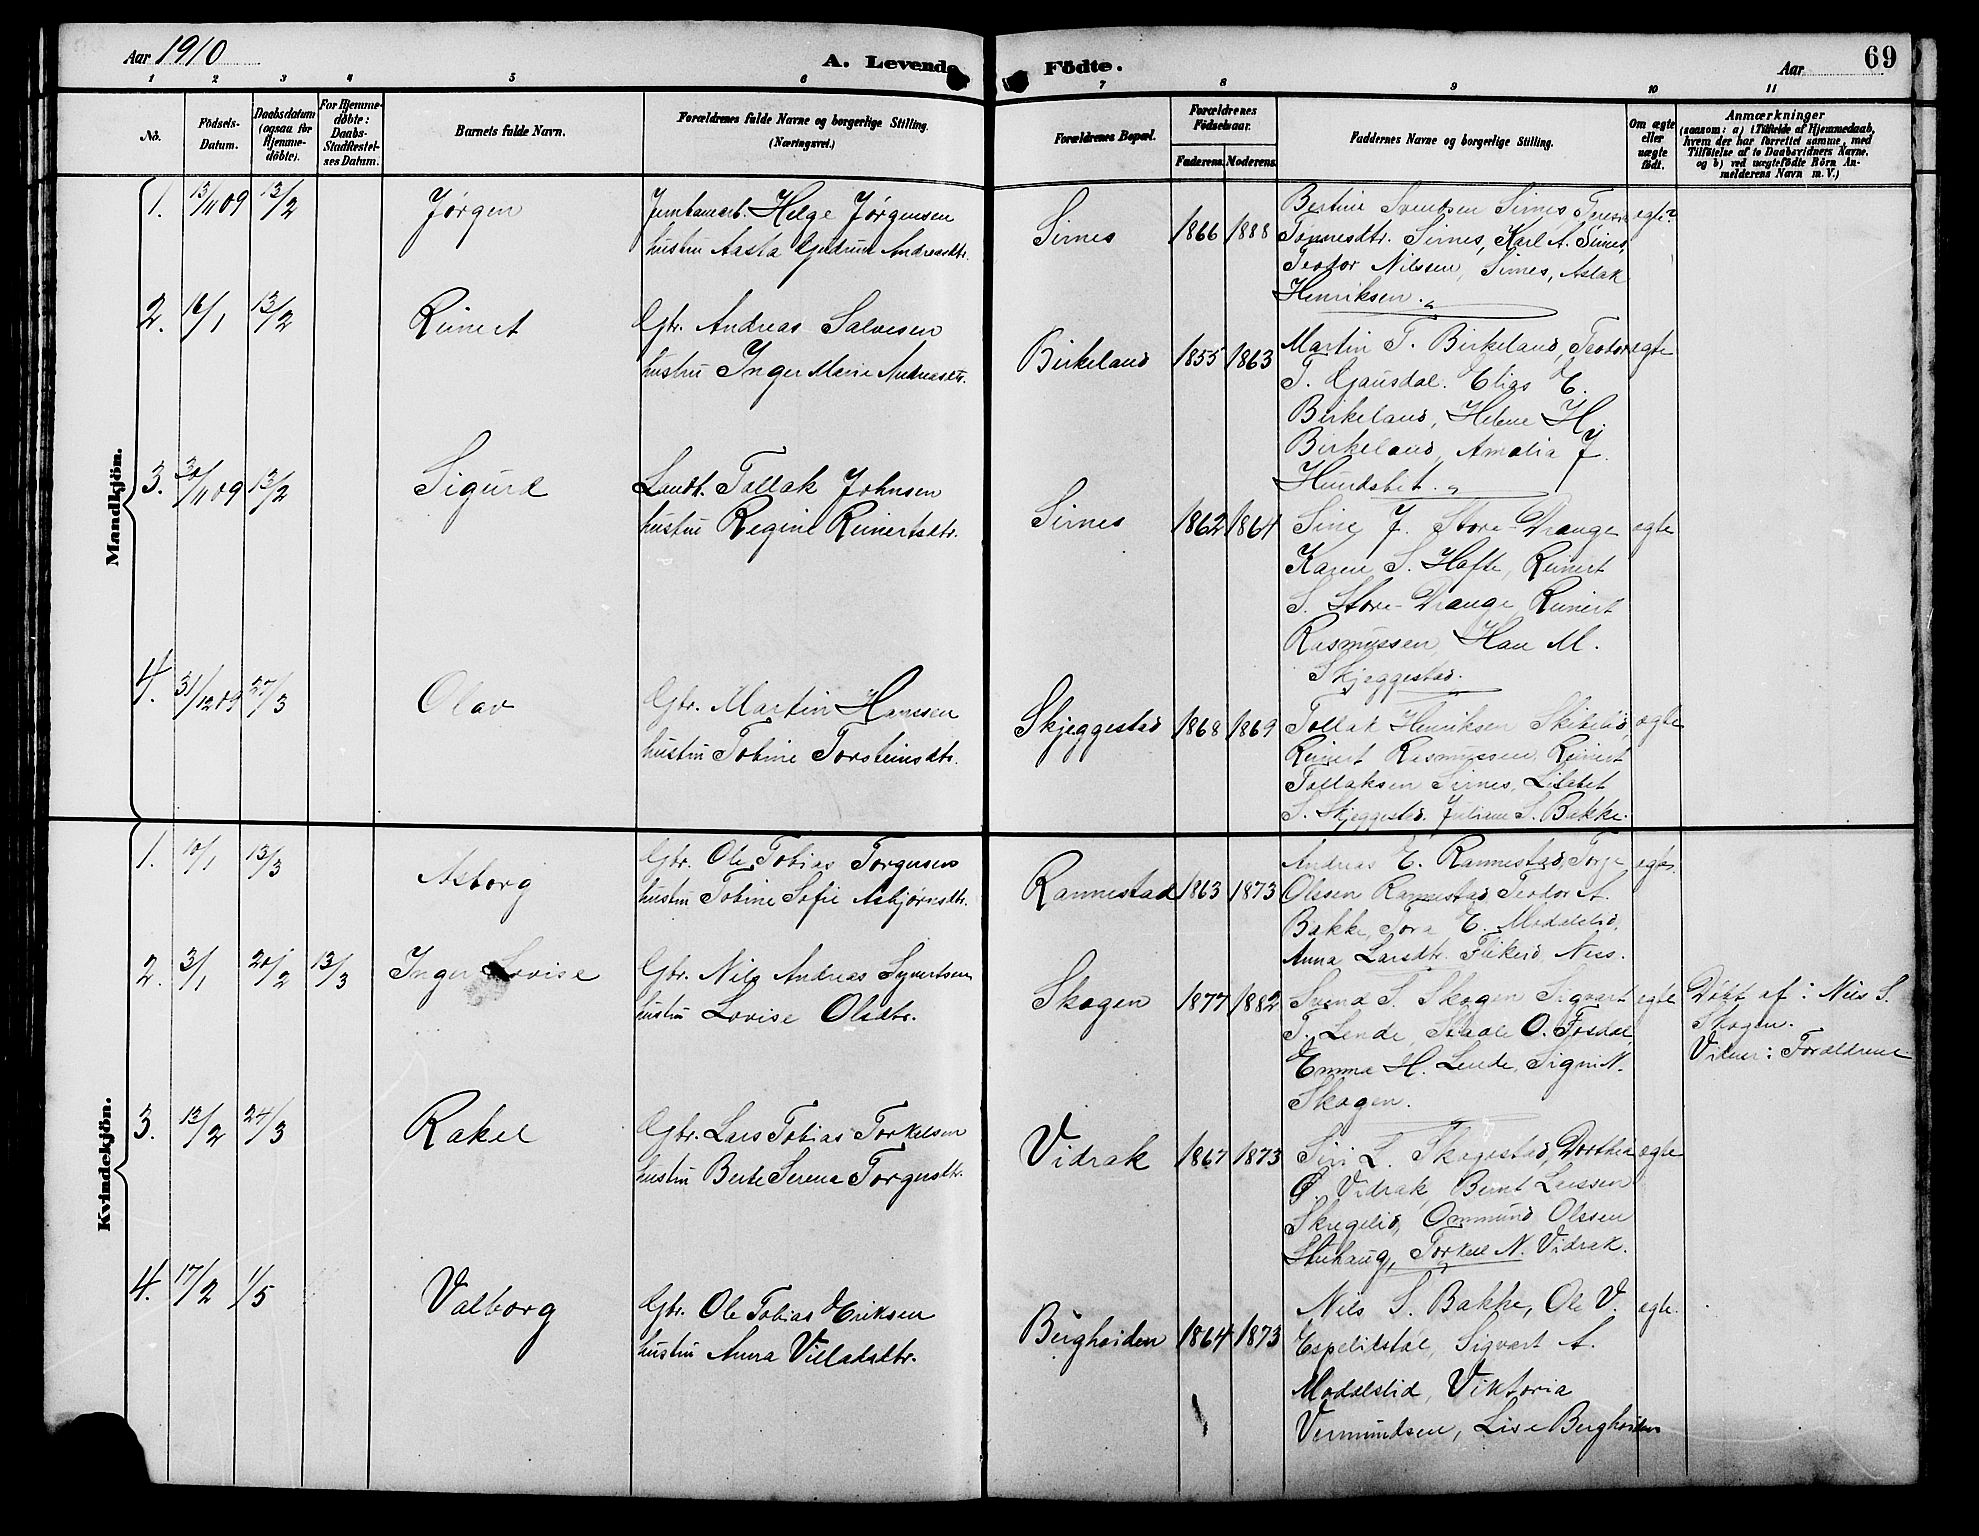 Aar 1910
A. Levende Födte.
Aar
69
1 2 3 4 5 6 7 8 9 10 11
No.
Födsels-Datum.
Daabsdatum (ogsaa for Hjemme-döbte).
For Hjemme-döbte: Daabs-Stadfæstel-ses Datum.
Barnets fulde Navn.
Forældrenes fulde Navne og borgerlige Stilling. (Næringsvei.)
Forældrenes Bopæl.
Forældrenes Födselsaar.
Faderens. Moderens.
Faddernes Navne og borgerlige Stilling.
Om ægte eller uægte födt.
Anmærkninger
(saasom: a) i Tilfælde af Hjemmedaab,
hvem der har forrettet samme, med
Tilföielse af to Daabsvidners Navne,
og b) ved uægtefödte Börn An-
melderens Navn m. V.)
Mandkjön.
1. 15/11 09 13/2 Jørgen
Jernbanearb. Helge Jørgensen
hustru Aasta Gudrun Andreasdtr.
Sirnes 1866 1888
Bertine Svendsen Sirnes,
Tønnesdtr. Sirnes, Karl A. Sirnes,
Teodor Nilssen, Sirnes, Aslak
Henriksen.
egte
2. 16/1 13/2 Reinert
Gbr. Andreas Salvesen
hustru Inger Marie Andreasdtr.
Birkeland 1855 1863
Martin T. Birkeland, Teodor
T. Gausdal. Elias E.
Birkeland, Helene H.
Birkeland, Amalia J.
egte
3. 30/11 09 13/2 Sigurd
Landh. Tollak Johnsen
hustru Regine Reinertsdtr.
Sirnes 1862 1864
Sine J. Store-Drange
Karen S. Hafte, Reinert
S. Store-Drange, Reinert
Rasmussen, M.
Skjeggestad.
egte
4. 31/12 09 27/3 Olav
Gbr. Martin Hanssen
hustru Tobine Torsteinsdtr.
Skjeggestad 1868 1869
Tollak Henriksen
Reinert Rasmussen, Reinert
Tollaksen Sirnes, Lisabet
S. Skjeggestad. Juliane S. Bakke.
egte
Kvindekjön.
1. 10/1 13/3 Asborg
Gbr. Ole Tobias Torgersen
hustru Tobine Sofie Asbjørnsdtr.
Rannestad 1863 1873
Andreas E. Rannestad, Torje
Olssen Rannestad, Teodor A.
Bakke, Tora E. Modalslid,
Anna Larsdtr. Fikeid, Ness.
egte
2. 3/1 20/2 13/3 Inger Lovise
Gbr. Nils Andreas Syvertsen
hustru Lovise Olsdtr.
Skogen 1877 1882
Svend S. Skogen, Sigvart
T. Lende, Staale O. Fosdal,
Emma H. Lende, Signi N.
Skogen.
egte
Døbt af: Nils S.
Skogen.
Vidner: Forældrene
3. 12/2 24/3 Rakel
Gbr. Lars Tobias Torkelsen
hustru Berte Serena Torgersdtr.
Vidrak 1867 1873
Siri L. Skogestad, Dorthea
G. Vidrak, Bernt Larssen
Skregelid, Ommund Olssen
Stuhaug, Torkel N. Vidrak.
egte
4. 17/2 1/5 Valborg
Gbr. Ole Tobias Eriksen
hustru Anna Villadsdtr.
Bergheiden 1864 1873
Nils S. Bakke, Ole V.
Espelidstøl, Sigvart A.
Modalslid, Viktoria
Vermundsen, Lise Bergheiden
egte.